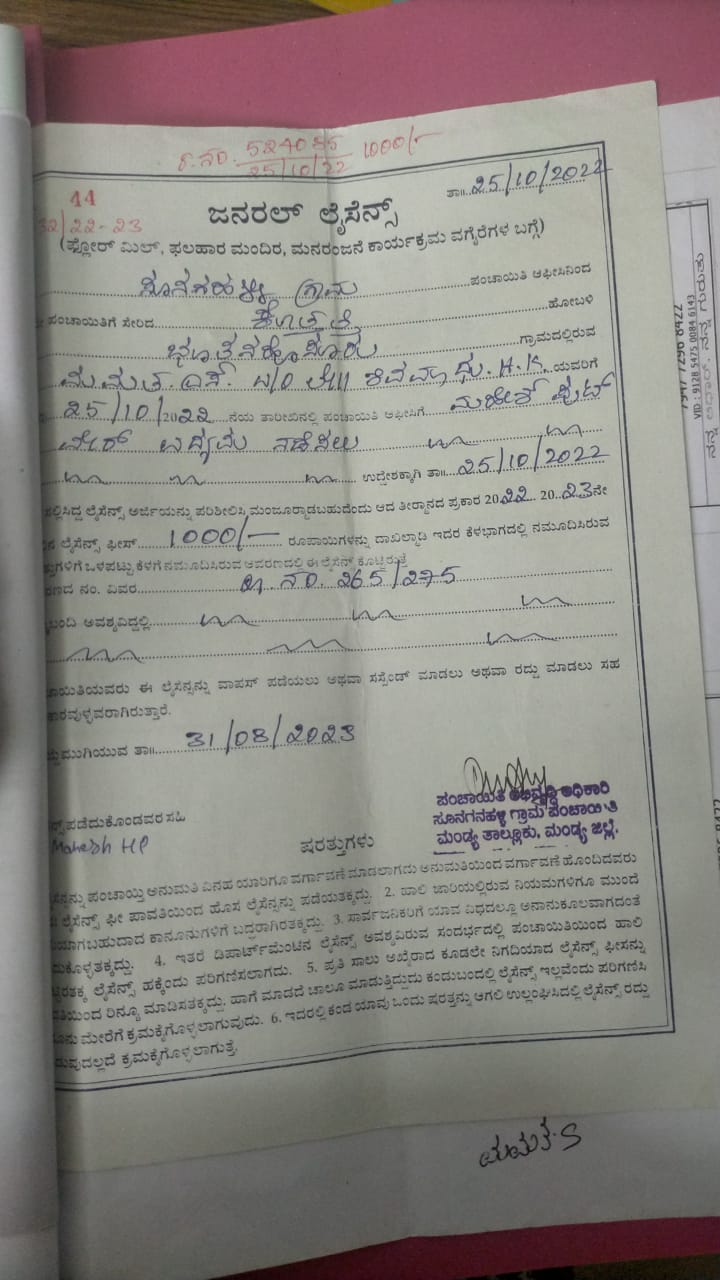 ರ.ನಂ. 524085 1000/-
25/10/22
44
32/22-23
ತಾ॥ 25/10/2022
ಜನರಲ್ ಲೈಸೆನ್ಸ್
(ಫ್ಲೋರ್ ಮಿಲ್, ಫಲಹಾರ ಮಂದಿರ, ಮನರಂಜನೆ ಕಾರ್ಯಕ್ರಮ ವಗೈರೆಗಳ ಬಗ್ಗೆ)
ಸೂನಗಹಳ್ಳಿ ಗ್ರಾಮ ಪಂಚಾಯಿತಿ ಆಫೀಸಿನಿಂದ
ಪಂಚಾಯಿತಿಗೆ ಸೇರಿದ ಕೊತ್ತತ್ತಿ ಹೋಬಳಿ
ಗ್ರಾಮದಲ್ಲಿರುವ
ಮಮತ. ಎಸ್. W/O ಲೇ॥ H.K. ಯವರಿಗೆ
25/10/2022 ನೆಯ ತಾರೀಖಿನಲ್ಲಿ ಪಂಚಾಯಿತಿ ಆಫೀಸಿಗೆ ಮಹೇಶ್ ಪ್ರೈಟ್
ವೇರ್ ಉದ್ಯಮ ನಡೆಸಲು
ಉದ್ದೇಶಕ್ಕಾಗಿ ತಾ॥ 25/10/2022
ಸಲ್ಲಿಸಿದ್ದ ಲೈಸೆನ್ಸ್ ಅರ್ಜಿಯನ್ನು ಪರಿಶೀಲಿಸಿ ಮಂಜೂರ್ಮಾಡಬಹುದೆಂದು ಆದ ತೀರ್ಮಾನದ ಪ್ರಕಾರ 2022 2023ನೇ
ಲೈಸೆನ್ಸ್ ಫೀಸ್ 1000/- ರೂಪಾಯಿಗಳನ್ನು ದಾಖಲ್ಮಾಡಿ ಇದರ ಕೆಳಭಾಗದಲ್ಲಿ ನಮೂದಿಸಿರುವ
ಒಳಪಟ್ಟು ಕೆಳಗೆ ನಮೂದಿಸಿರುವ ಆವರಣದಲ್ಲಿ ಈ ಲೈಸೆನ್ಸ್ ಕೊಟ್ಟಿರುತ್ತೆ
ನಂ. ವಿವರ ಖಾ. ನಂ. 265/275
ಅವಶ್ಯವಿದ್ದಲ್ಲಿ
ಈ ಲೈಸೆನ್ಸನ್ನು ವಾಪಸ್ ಪಡೆಯಲು ಅಥವಾ ಸಸ್ಪೆಂಡ್ ಮಾಡಲು ಅಥವಾ ರದ್ದು ಮಾಡಲು ಸಹ
ಮುಗಿಯುವ ತಾ॥ 31/03/2023
ಪಡೆದುಕೊಂಡವರ ಸಹಿ
Mahesh HP
ಷರತ್ತುಗಳು
ಪಂಚಾಯಿತಿ ಅಭಿವೃದ್ಧಿ ಅಧಿಕಾರಿ
ಸೂನಗನಹಳ್ಳಿ ಗ್ರಾಮ ಪಂಚಾಯಿತಿ
ಮಂಡ್ಯ ತಾಲ್ಲೂಕು, ಮಂಡ್ಯ ಜಿಲ್ಲೆ.
ಪಂಚಾಯ್ತಿ ಅನುಮತಿ ವಿನಹ ಯಾರಿಗೂ ವರ್ಗಾವಣೆ ಮಾಡಲಾಗದು ಅನುಮತಿಯಿಂದ ವರ್ಗಾವಣೆ ಹೊಂದಿದವರು
ಲೈಸೆನ್ಸ್ ಫೀ ಪಾವತಿಯಿಂದ ಹೊಸ ಲೈಸೆನ್ಸನ್ನು ಪಡೆಯತಕ್ಕದ್ದು. 2. ಹಾಲಿ ಜಾರಿಯಲ್ಲಿರುವ ನಿಯಮಗಳಿಗೂ ಮುಂದೆ
ಕಾನೂನುಗಳಿಗೆ ಬದ್ಧರಾಗಿರತಕ್ಕದ್ದು. 3. ಸಾರ್ವಜನಿಕರಿಗೆ ಯಾವ ವಿಧದಲ್ಲೂ ಅನಾನುಕೂಲವಾಗದಂತೆ
4. ಇತರೆ ಡಿಪಾರ್ಟ್‌ಮೆಂಟಿನ ಲೈಸೆನ್ಸ್ ಅವಶ್ಯವಿರುವ ಸಂದರ್ಭದಲ್ಲಿ ಪಂಚಾಯಿತಿಯಿಂದ ಹಾಲಿ
ಲೈಸೆನ್ಸ್ ಹಕ್ಕೆಂದು ಪರಿಗಣಿಸಲಾಗದು. 5. ಪ್ರತಿ ಸಾಲು ಅಖೈರಾದ ಕೂಡಲೇ ನಿಗದಿಯಾದ ಲೈಸೆನ್ಸ್ ಫೀಸನ್ನು
ರಿನ್ಯೂ ಮಾಡಿಸತಕ್ಕದ್ದು. ಹಾಗೆ ಮಾಡದೆ ಚಾಲೂ ಮಾಡುತ್ತಿದ್ದುದು ಕಂಡುಬಂದಲ್ಲಿ ಲೈಸೆನ್ಸ್ ಇಲ್ಲವೆಂದು ಪರಿಗಣಿಸಿ
ಮೇರೆಗೆ ಕ್ರಮಕೈಗೊಳ್ಳಲಾಗುವುದು. 6. ಇದರಲ್ಲಿ ಕಂಡ ಯಾವು ಒಂದು ಷರತ್ತನ್ನು ಆಗಲಿ ಉಲ್ಲಂಘಿಸಿದಲ್ಲಿ ಲೈಸೆನ್ಸ್ ರದ್ದು
ಕ್ರಮಕೈಗೊಳ್ಳಲಾಗುತ್ತೆ.
ಮಮತ.S
7296 8422
VID : 9128 5475 0084 6143
ನನ್ನ ಆಧಾರ್, ನನ್ನ ಗುರುತು